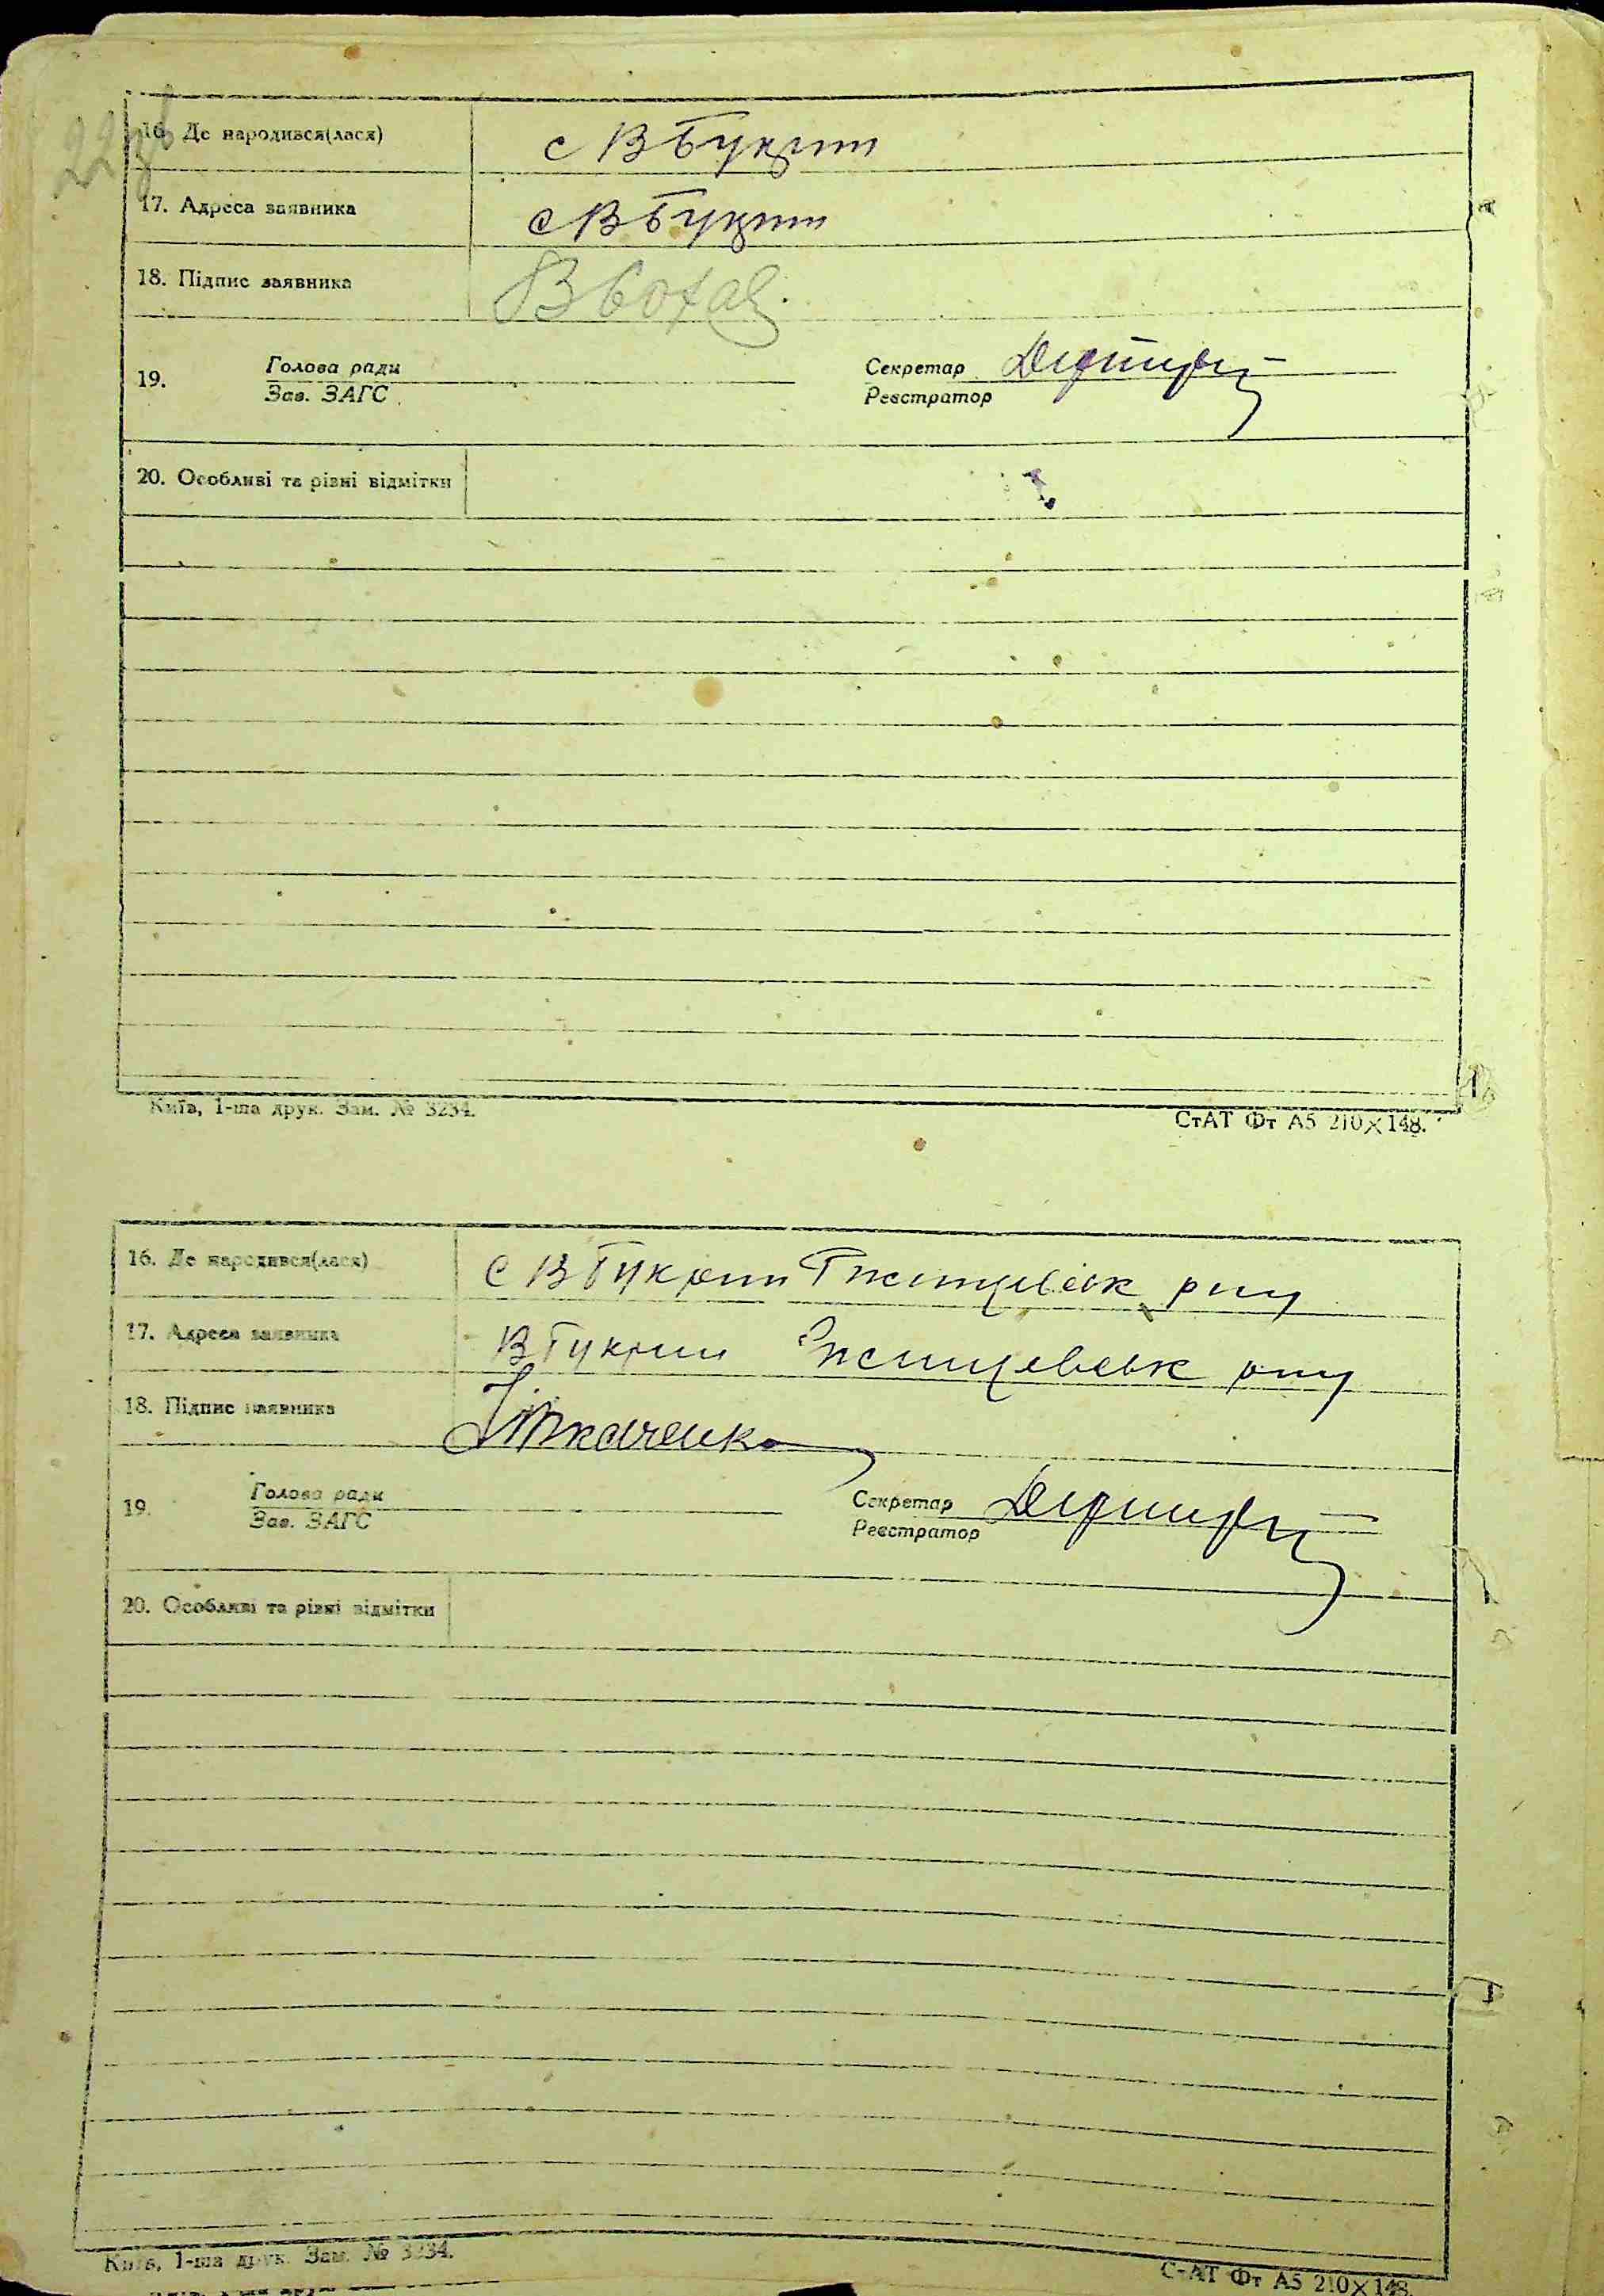 22зв
16. Де народився(лася) с В Букрин
17. Адреса заявника с В Букрин
18. Підпис заявника
19. Голова ради Секретар
Зав. ЗАГС Реєстратор
20. Особливі та різні відмітки
Київ, 1-ша друк. Зам. № 3234. СтАТ Фт А5 210×148.
16. Де народився(лася) с В Букрин Ржищевськ рну
17. Адреса заявника В Букрин Ржищевськ рну
18. Підпис заявника Ткаченко
19. Голова ради Секретар
Зав. ЗАГС Реєстратор
20. Особливі та різні відмітки
Київ, 1-ша друк. Зам. № 3234. СтАТ Фт А5 210×148.